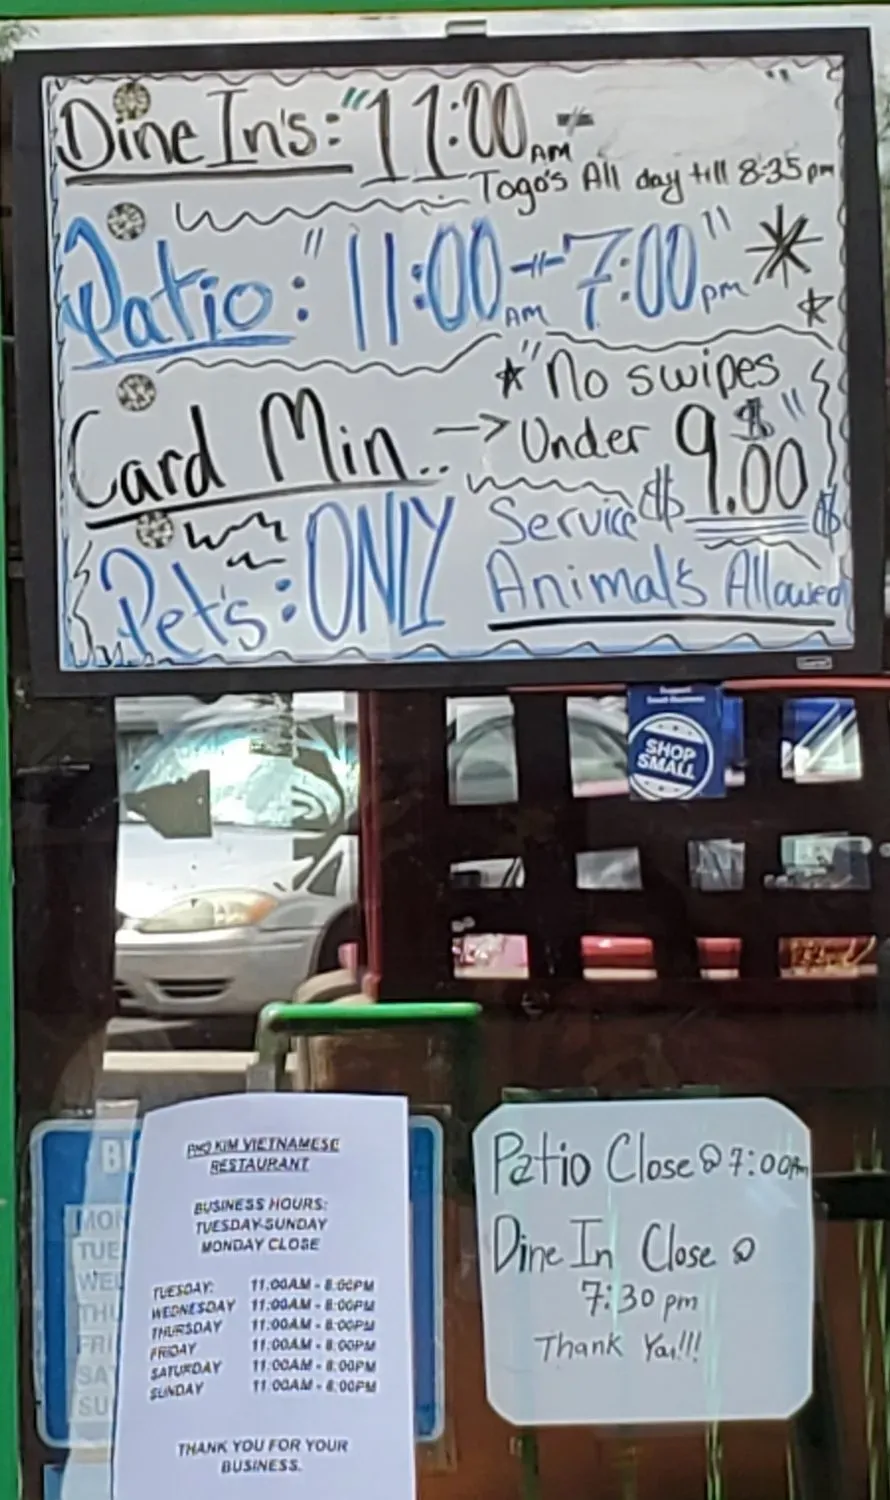 Dine In's: "11:00 AM -
Togo's All day till 8:35 pm
Patio: "11:00 AM - 7:00 pm"
Card Min.. → "No swipes
Under $9.00"
Pet's: ONLY Service
Animal's Allowed
Support
Small Business
SHOP
SMALL
PHO KIM VIETNAMESE
RESTAURANT
BUSINESS HOURS:
TUESDAY-SUNDAY
MONDAY CLOSE
TUESDAY: 11:00AM - 8:00PM
WEDNESDAY 11:00AM - 8:00PM
THURSDAY 11:00AM - 8:00PM
FRIDAY 11:00AM - 8:00PM
SATURDAY 11:00AM - 8:00PM
SUNDAY 11:00AM - 8:00PM
THANK YOU FOR YOUR
BUSINESS.
MON
TUE
WED
THU
FRI
SA
SU
Patio Close @ 7:00pm
Dine In Close @
7:30 pm
Thank You!!!